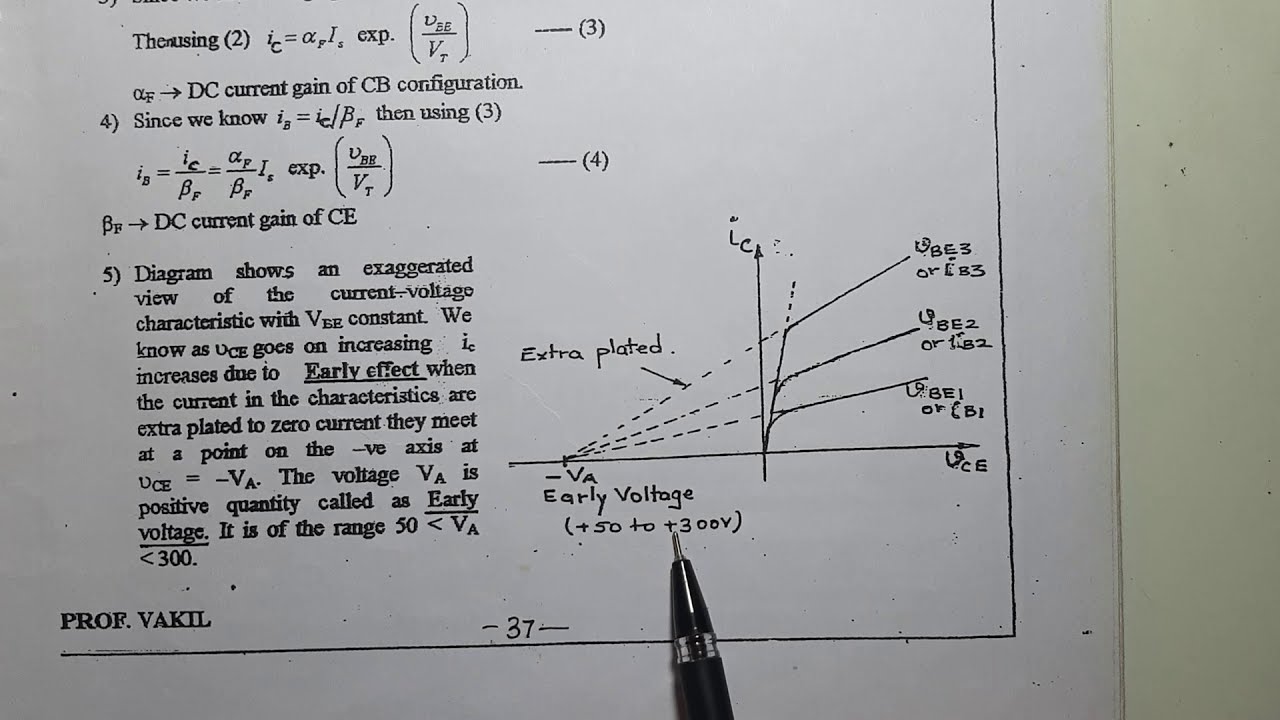 Then using (2) i_C = α_F I_s exp. (υ_BE / V_T) —— (3)
α_F → DC current gain of CB configuration.
4) Since we know i_B = i_C/β_F then using (3)
i_B = i_C / β_F = α_F / β_F I_s exp. (υ_BE / V_T) —— (4)
β_F → DC current gain of CE
5) Diagram shows an exaggerated
view of the current-voltage
characteristic with V_BE constant. We
know as υ_CE goes on increasing i_c
increases due to Early effect when
the current in the characteristics are
extra plated to zero current they meet
at a point on the –ve axis at
υ_CE = –V_A. The voltage V_A is
positive quantity called as Early
voltage. It is of the range 50 < V_A
< 300.
i_C
υ_BE3
or i_B3
υ_BE2
or i_B2
υ_BE1
or i_B1
Extra plated.
υ_CE
-V_A
Early Voltage
(+50 to +300V)
PROF. VAKIL
- 37 —